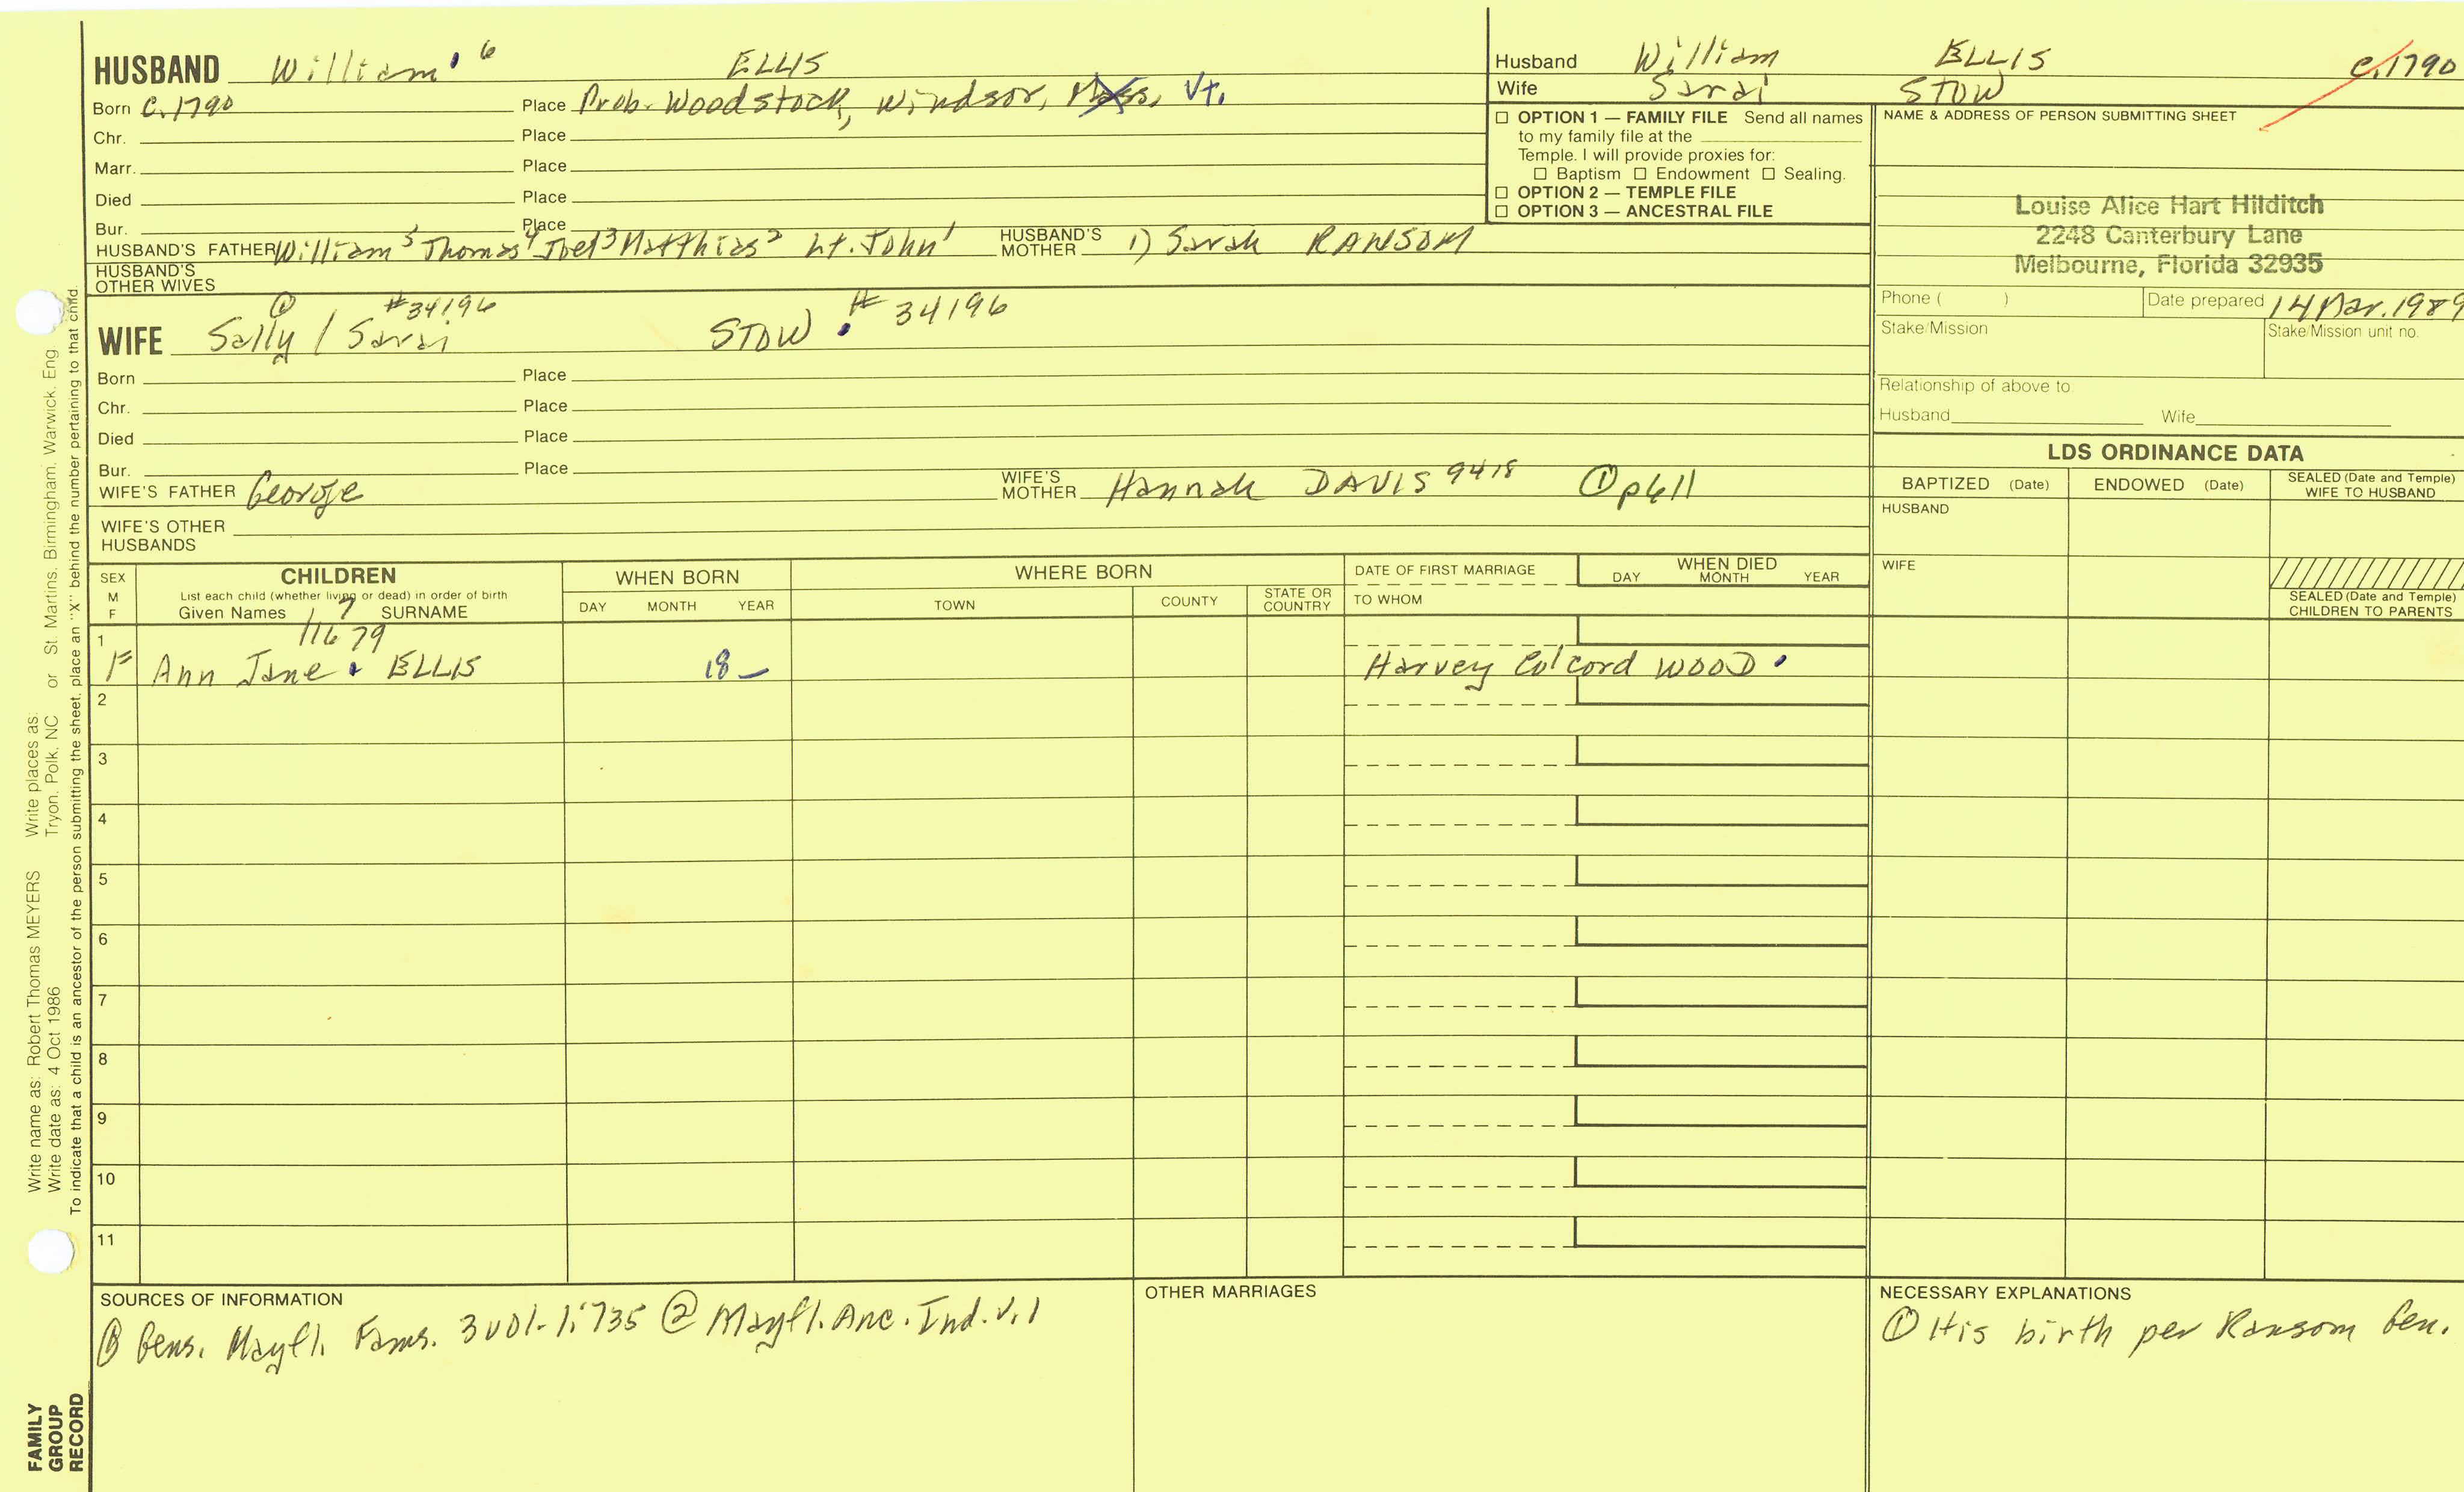 HUSBAND William 6 ELLIS
Born c.1790 Place Prob. Woodstock, Windsor, Mass, Vt.
Chr. Place
Marr. Place
Died Place
Bur. Place
HUSBAND'S FATHER William 5 Thomas 4 Joel 3 Matthias 2 Lt. John 1 HUSBAND'S MOTHER 1) Sarah RANSOM
HUSBAND'S OTHER WIVES
① #34196
WIFE Sally / Sarai STOW # 34196
Born Place
Chr. Place
Died Place
Bur. Place
WIFE'S FATHER George WIFE'S MOTHER Hannah DAVIS 9418 ① p611
WIFE'S OTHER HUSBANDS
Husband William ELLIS c.1790
Wife Sarai STOW
☐ OPTION 1 — FAMILY FILE Send all names
to my family file at the
Temple. I will provide proxies for:
☐ Baptism ☐ Endowment ☐ Sealing.
☐ OPTION 2 — TEMPLE FILE
☐ OPTION 3 — ANCESTRAL FILE
NAME & ADDRESS OF PERSON SUBMITTING SHEET
Louise Alice Hart Hilditch
2248 Canterbury Lane
Melbourne, Florida 32935
Phone ( ) Date prepared 14 Mar. 1989
Stake/Mission Stake/Mission unit no.
Relationship of above to
Husband Wife
LDS ORDINANCE DATA
BAPTIZED (Date) ENDOWED (Date) SEALED (Date and Temple) WIFE TO HUSBAND
HUSBAND
WIFE
SEALED (Date and Temple) CHILDREN TO PARENTS
SEX M F
CHILDREN
List each child (whether living or dead) in order of birth
Given Names 7 SURNAME
WHEN BORN
DAY MONTH YEAR
WHERE BORN
TOWN COUNTY STATE OR COUNTRY
DATE OF FIRST MARRIAGE
TO WHOM
WHEN DIED
DAY MONTH YEAR
1 11679
F Ann Jane ELLIS 18_ Harvey Colcord WOOD
2
3
4
5
6
7
8
9
10
11
SOURCES OF INFORMATION
① Gens. Mayfl. Fams. 3 vol-1:735 ② Mayfl. Anc. Ind. v.1
OTHER MARRIAGES
NECESSARY EXPLANATIONS
① His birth per Ransom Gen.
Write name as: Robert Thomas MEYERS Write places as:
Write date as: 4 Oct 1986 Tryon, Polk, NC or St. Martins, Birmingham, Warwick, Eng.
To indicate that a child is an ancestor of the person submitting the sheet, place an "X" behind the number pertaining to that child.
FAMILY
GROUP
RECORD